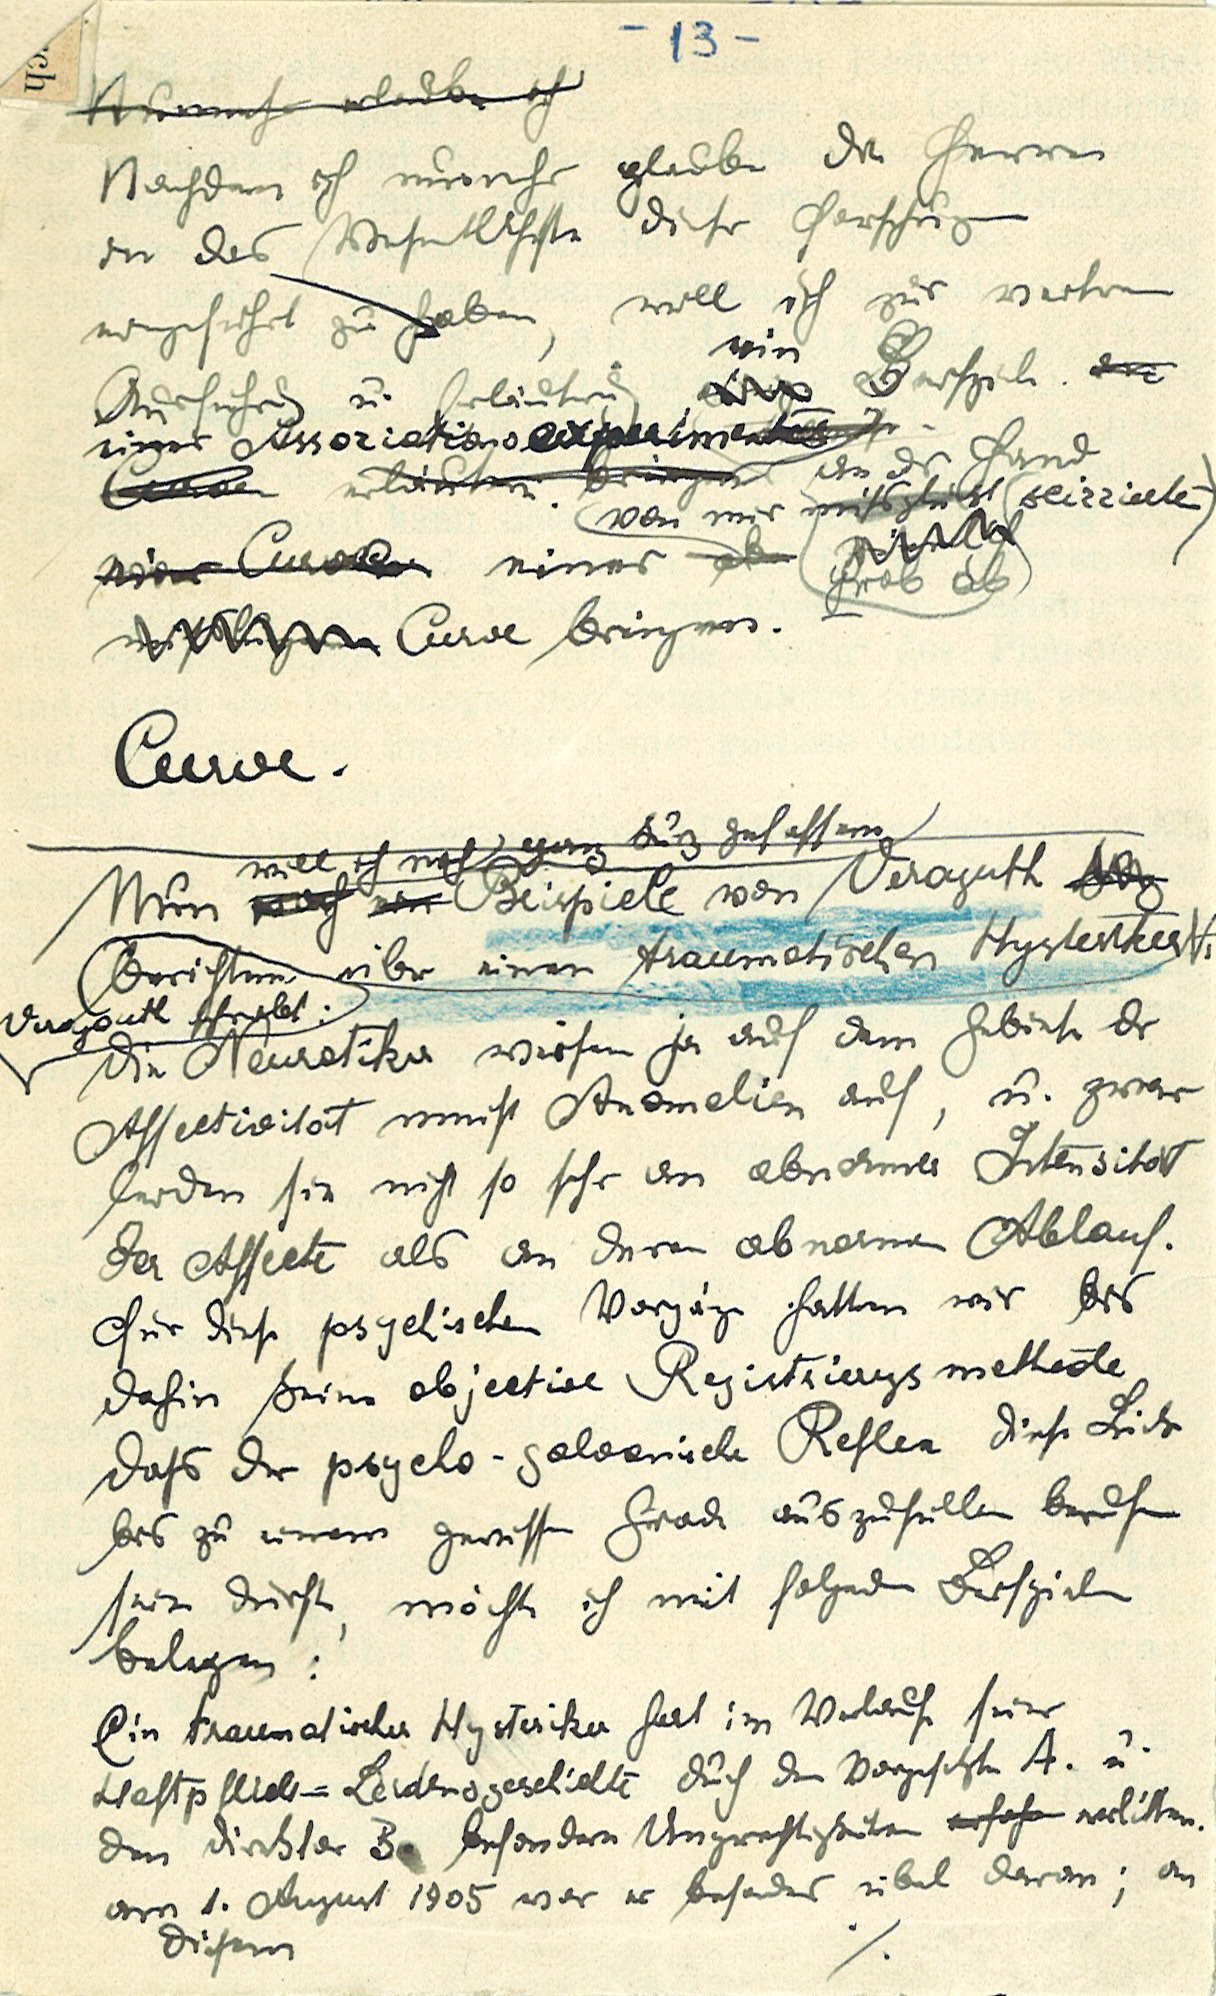 - 13 -
ch
Nunmehr erlaube ich
Nachdem ich nunmehr glaube die Herren
in das Wesentlichste dieser Forschung
eingeführt zu haben, will ich zur weitern
Ausführung u. Erläuterung ein Beispiel
eines Associationsexperimentes
erläutern. bringen an der Hand
von mir (skizzierte)
einer Curve einer
grob ab
Curve bringen.
Curve.
will ich noch ganz kurz
Nun noch ein Beispiele von Veraguth
berichten über einen traumatischen Hysteriker
Veraguth schreibt:
Die Neurotiker weisen ja auf dem Gebiete der
Affectivität meist Anomalien auf, u. zwar
leiden sie nicht so sehr an abnormer Intensität
der Affecte als an deren abnormen Ablauf.
Für diese psychischen Vorgänge hatten wir bis
dahin keine objective Registrierungsmethode
dass der psycho-galvanische Reflex diese Lücke
bis zu einem gewissen Grade auszufüllen berufen
sein dürfte, möchte ich mit folgenden Beispielen
belegen:
Ein traumatischer Hysteriker hat im Verlaufe seiner
Haftpflicht=Leidensgeschichte durch den Vorgesetzten A. u.
den Direktor B. besondere Ungerechtigkeiten erfahren erlitten.
am 1. August 1905 war er besonders übel daran; an
diesem
./.